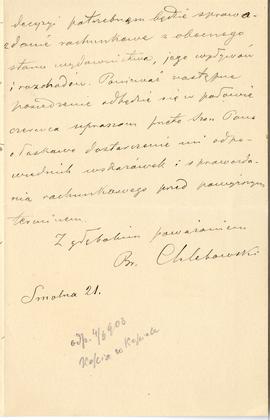 decyzyi potrzebnem będzie sprawo-
zdanie rachunkowe z obecnego
stanu wydawnictwa, jego wpływów
i rozchodów. Ponieważ następne
posiedzenie odbędzie się w połowie
czerwca upraszam przeto Szan. Pana
o łaskawe dostarczenie mi odpo-
wiednich wskazówek i sprawozda-
nia rachunkowego przed powyższym
terminem.
Z głębokim poważaniem
Br. Chlebowski
Smolna 21.
odp. 4/6 903